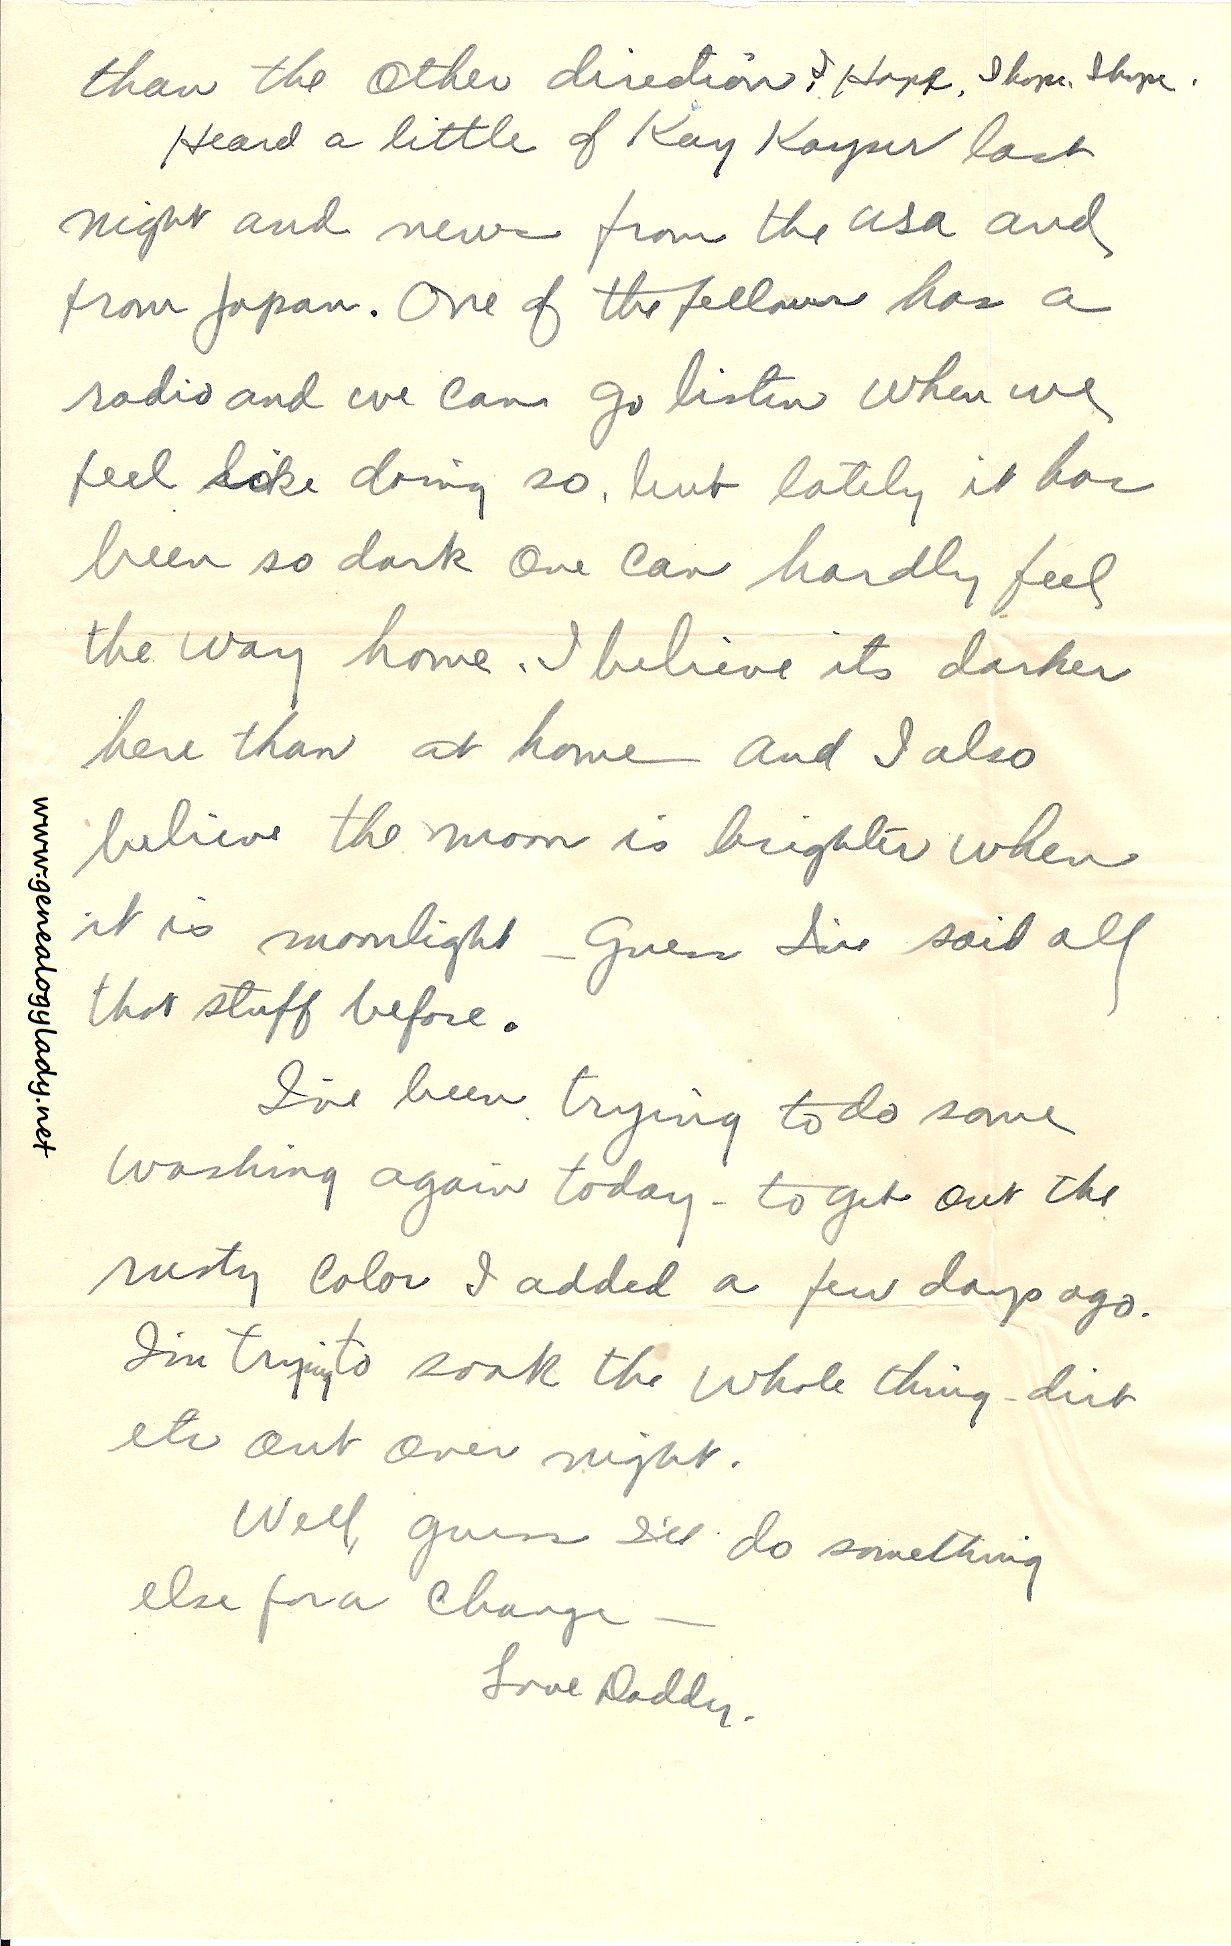 than the other direction. I Hope, I hope. I hope.
Heard a little of Kay Kayser last
night and news from the USA and
from Japan. One of the fellows has a
radio and we can go listen when we
feel like doing so, but lately it has
been so dark one can hardly feel
the way home. I believe its darker
here than at home and I also
believe the moon is brighter when
it is moonlight - Guess I've said all
that stuff before.
I've been trying to do some
washing again today - to get out the
rusty color I added a few days ago.
I'm trying to soak the whole thing - dirt
etc out over night.
Well, guess I'll do something
else for a change -
Love Daddy.
www.genealogylady.net